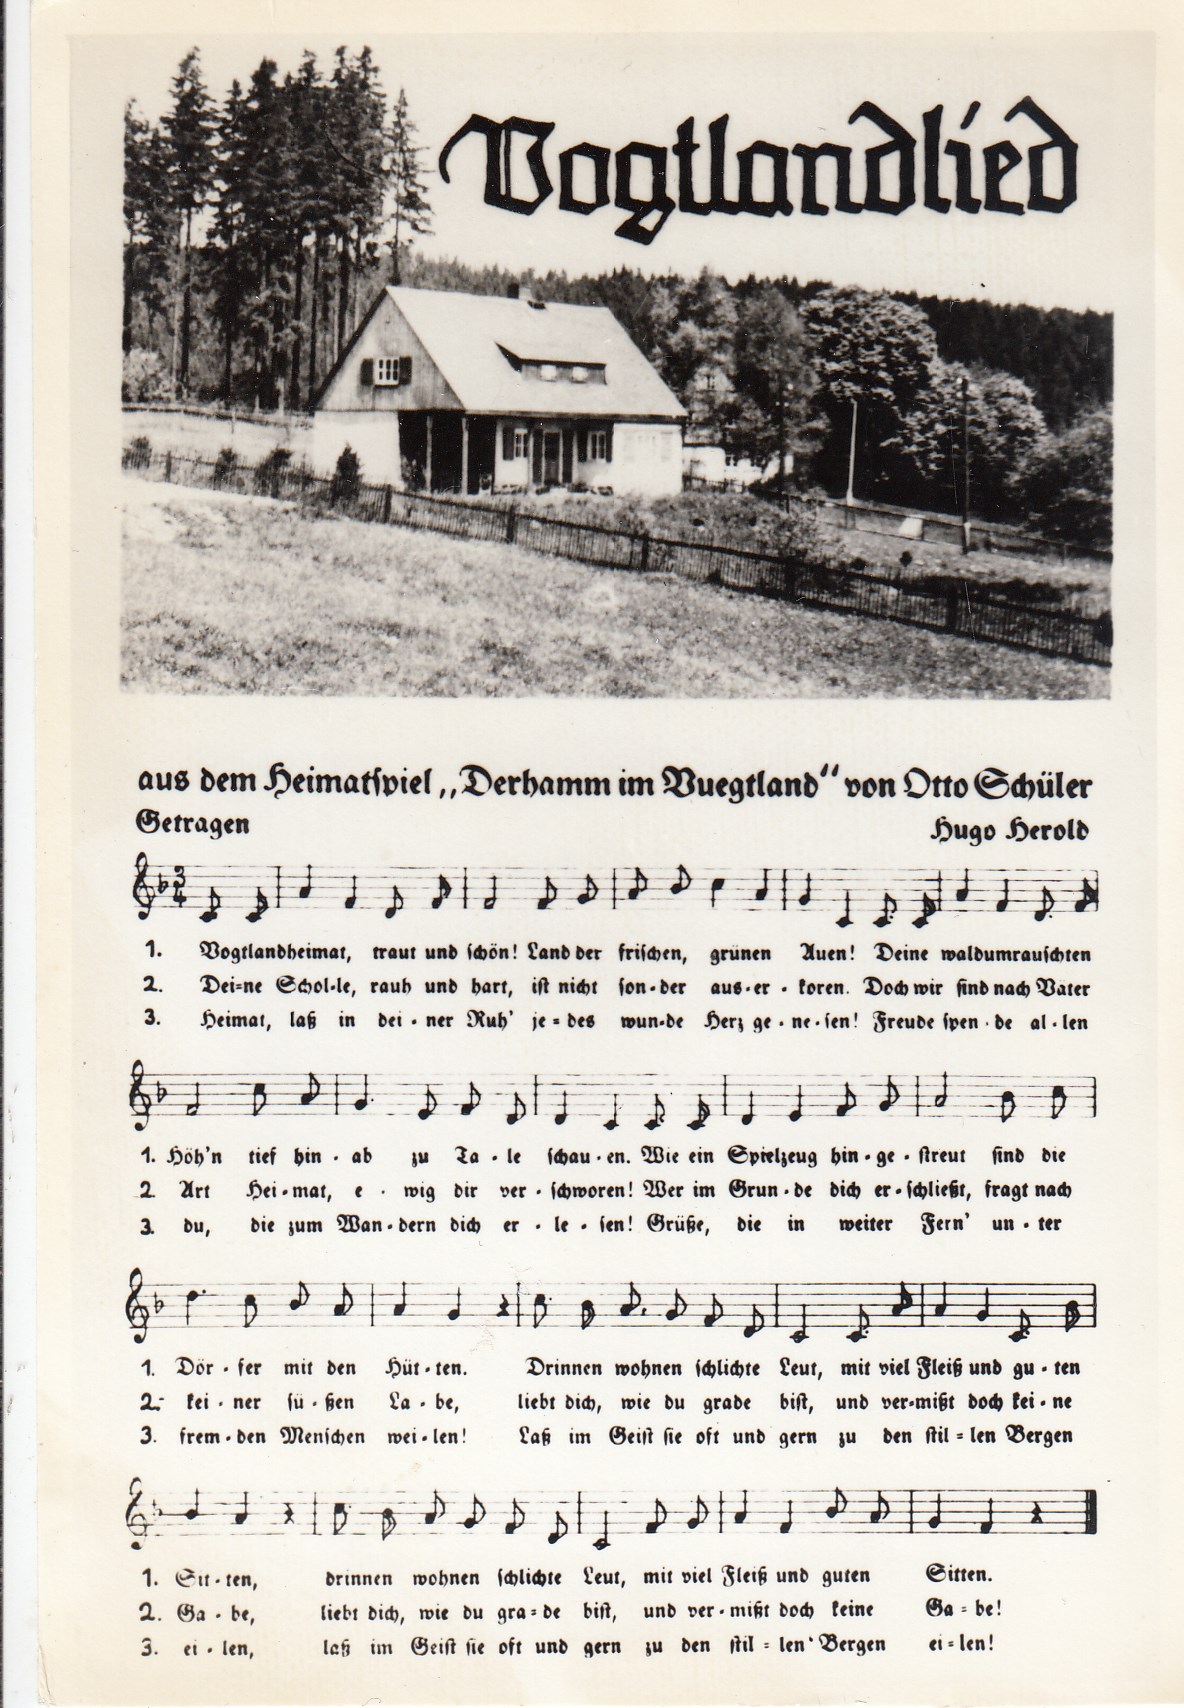 Vogtlandlied
aus dem Heimatspiel „Derhamm im Vuegtland“ von Otto Schüler
Getragen
Hugo Herold
3
4
1. Vogtlandheimat, traut und schön! Land der frischen, grünen Auen! Deine waldumrauschten
2. Dei=ne Schol-le, rauh und hart, ist nicht son-der aus-er-koren. Doch wir sind nach Vater
3. Heimat, laß in dei-ner Ruh' je=des wun-de Herz ge-ne-sen! Freude spen-de al-len
1. Höh'n tief hin-ab zu Ta-le schau-en. Wie ein Spielzeug hin-ge-streut sind die
2 Art Hei-mat, e-wig dir ver-schworen! Wer im Grun-de dich er-schließt, fragt nach
3 du, die zum Wan-dern dich er-le-sen! Grüße, die in weiter Fern' un-ter
1. Dör-fer mit den Hüt-ten. Drinnen wohnen schlichte Leut, mit viel Fleiß und gu-ten
2. kei-ner sü-ßen La-be, liebt dich, wie du grade bist, und ver-mißt doch kei-ne
3. frem-den Menschen wei-len! Laß im Geist sie oft und gern zu den stil=len Bergen
1. Sit-ten, drinnen wohnen schlichte Leut, mit viel Fleiß und guten Sitten.
2. Ga-be, liebt dich, wie du gra=de bist, und ver-mißt doch keine Ga=be!
3. ei-len, laß im Geist sie oft und gern zu den stil=len Bergen ei-len!